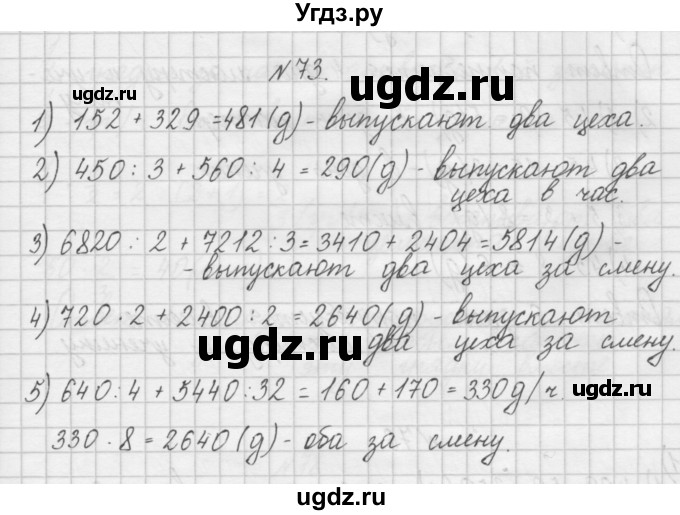 Угдз.ру
N 73.
ugdz.ru ugdz.ru
1) 152 + 329 = 481 (д) - выпускают два цеха.
2) 450 : 3 + 560 : 4 = 290 (д) - выпускают два
цеха в час.
3) 6820 : 2 + 7212 : 3 = 3410 + 2404 = 5814 (д) -
- выпускают два цеха за смену.
4) 720 · 2 + 2400 : 2 = 2640 (д) - выпускают
два цеха за смену.
ugdz.ru
5) 640 : 4 + 5440 : 32 = 160 + 170 = 330 д/ч.
ugdz.ru ugdz.ru
330 · 8 = 2640 (д) - оба за смену.
ugdz.ru